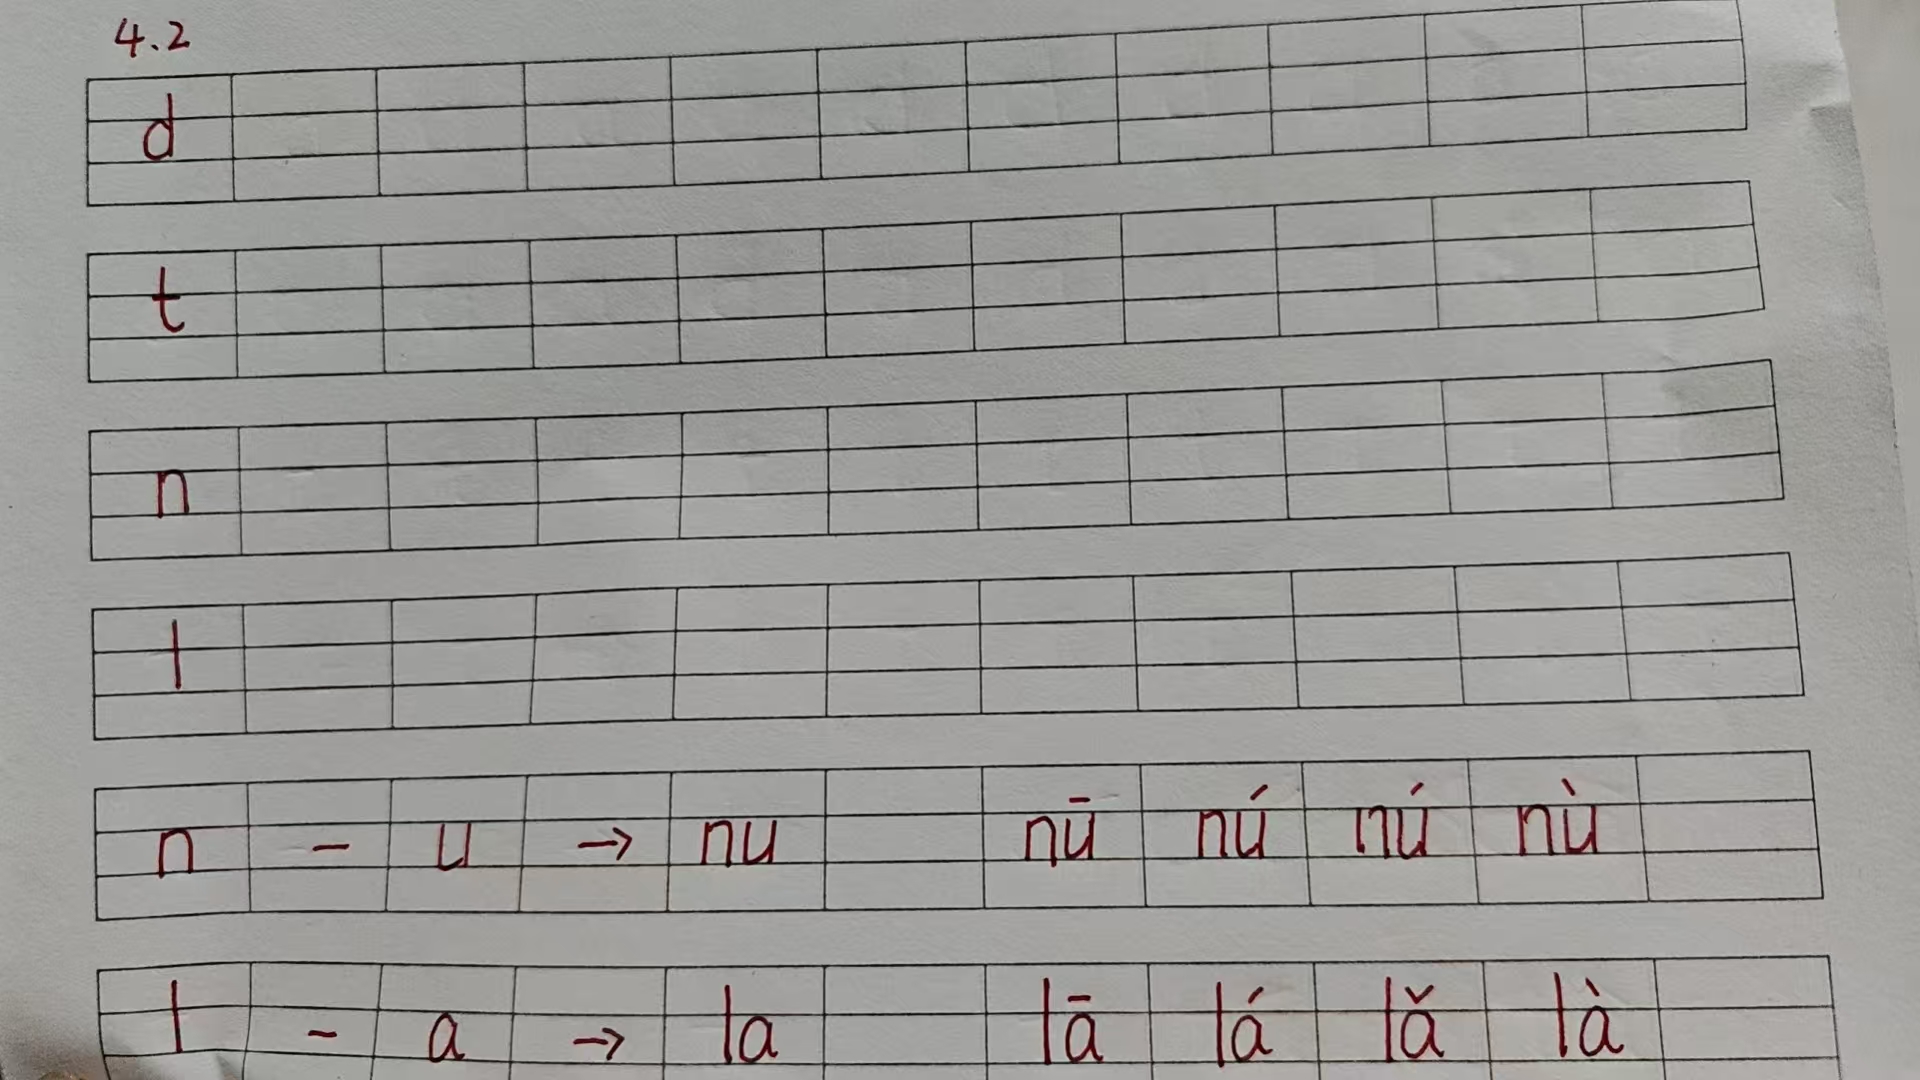 4.2
d
t
n
l
n - u → nu nū nú nú nù
l - a → la lā lá lǎ là